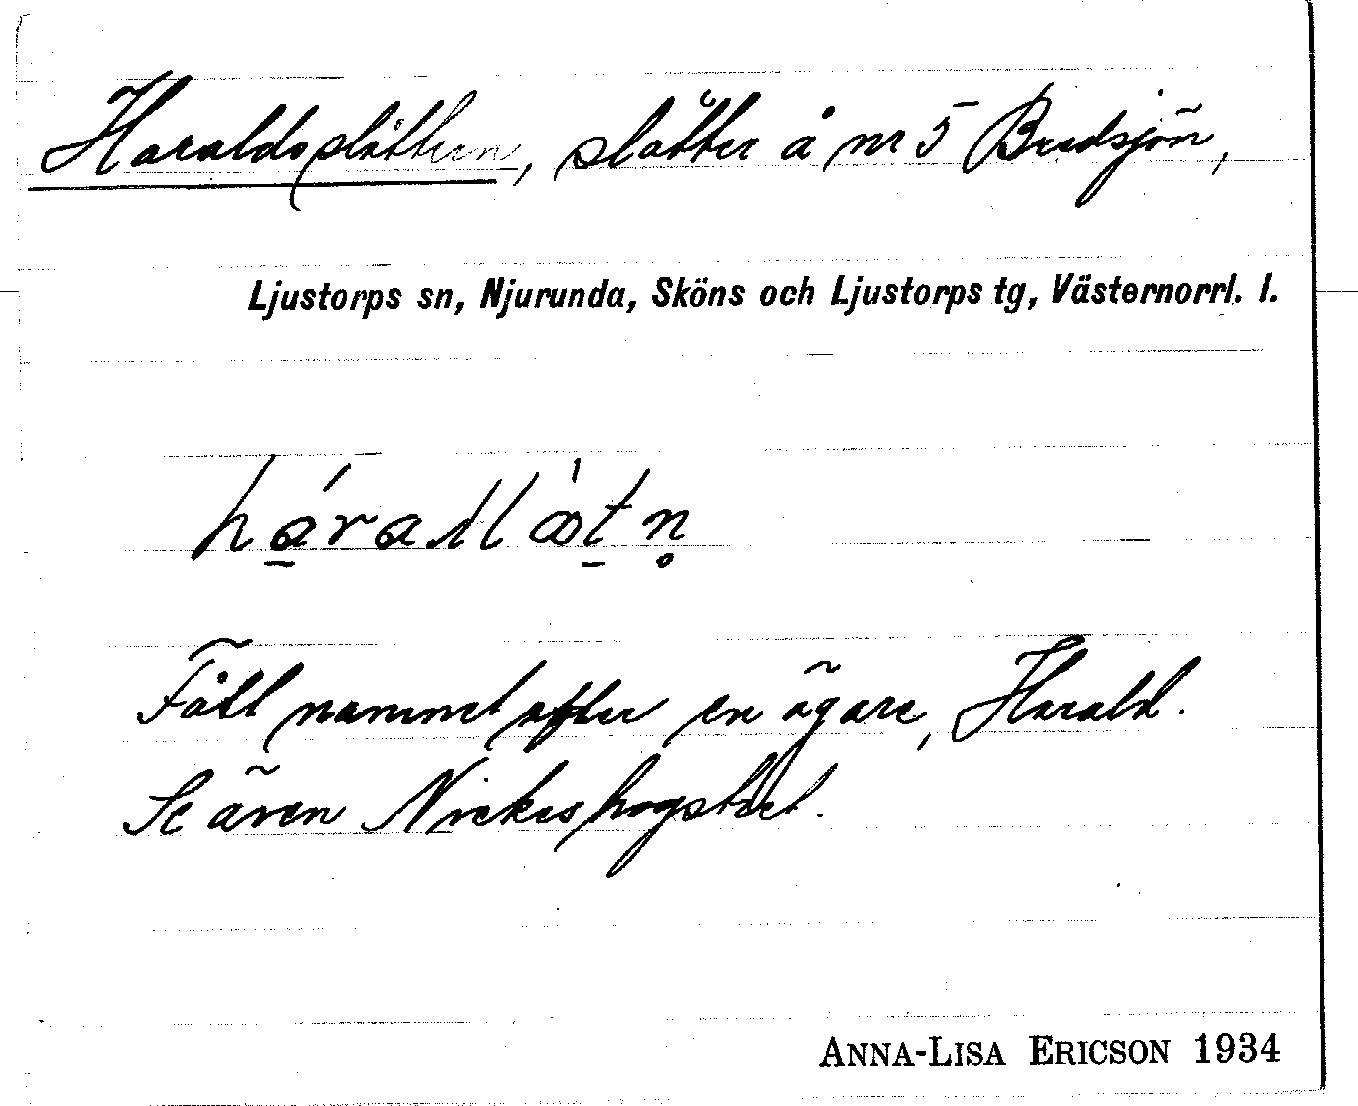 Haraldsslåttern, slåtter å nr 5 Bredsjön,
Ljustorps sn, Njurunda, Sköns och Ljustorps tg, Västernorrl. l.
Fått namnet efter en ägare, Harald.
Se även
ANNA-LISA ERICSON 1934